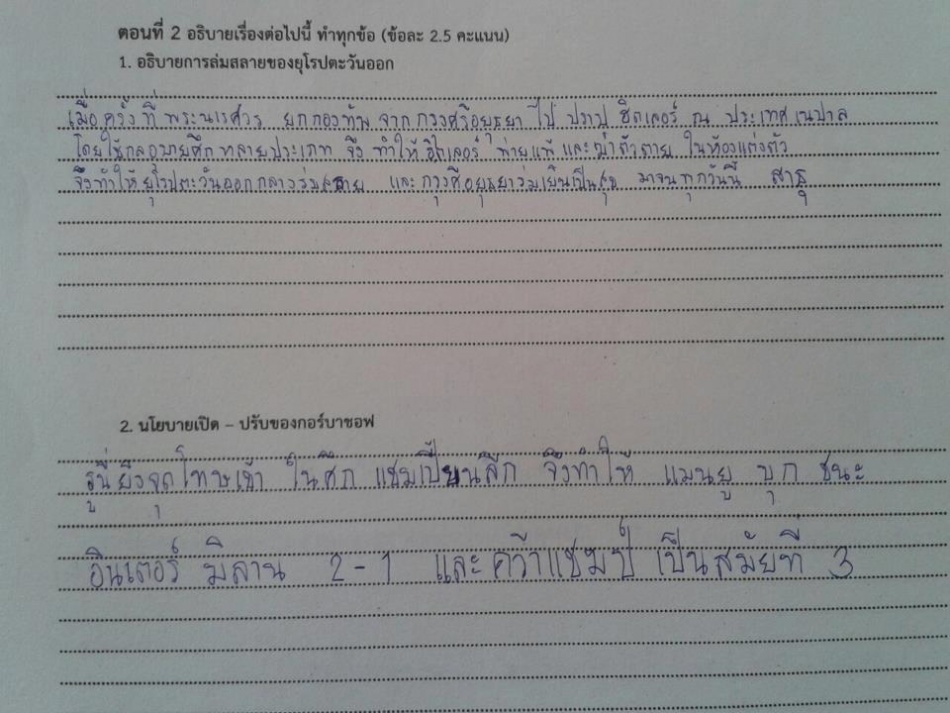 ตอนที่ 2 อธิบายเรื่องต่อไปนี้ ทำทุกข้อ (ข้อละ 2.5 คะแนน)
1. อธิบายการล่มสลายของยุโรปตะวันออก
เมื่อครั้งที่พระนเรศวร ยกกองทัพ จากกรุงศรีอยุธยา ไป ปราบ ฮิตเลอร์ ณ ประเทศเนปาล
โดยใช้กลอุบายศึกหลายประเภท จึง ทำให้ฮิตเลอร์ พ่ายแพ้และฆ่าตัวตาย ในห้องแต่งตัว
จึงทำให้ยุโรปตะวันออกกลางล่มสลาย และกรุงศรีอยุธยาร่มเย็นเป็นสุข มาจนทุกวันนี้ สาธุ
2. นโยบายเปิด – ปรับของกอร์บาชอฟ
รูนี่ยิงจุดโทษเข้า ในศึก แชมเปี้ยนลีก จึงทำให้ แมนยู บุก ชนะ
อินเตอร์ มิลาน 2-1 และคว้าแชมป์ เป็นสมัยที่ 3